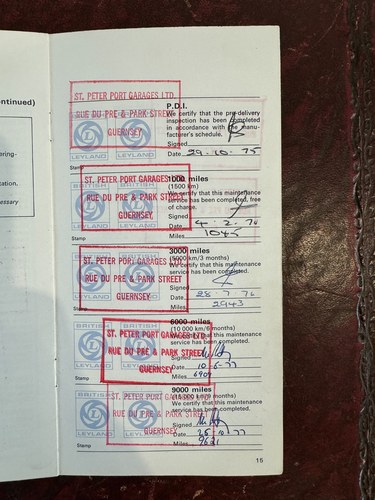 ontinued)
ering-
cation,
ecessary
ST. PETER PORT GARAGES LTD.
RUE DU PRE & PARK STREET
GUERNSEY
LEYLAND LEYLAND
Stamp
P.D.I.
We certify that the pre-delivery
inspection has been completed
in accordance with the manu-
facturer's schedule.
Signed
Date 29-10-75
ST. PETER PORT GARAGES LTD.
RUE DU PRE & PARK STREET
GUERNSEY
BRITISH BRITISH
LEYLAND
Stamp
1000 miles
(1500 km)
We certify that this maintenance
service has been completed, free
of charge.
Signed
Date 4-2-76
Miles 1045
ST. PETER PORT GARAGES LTD.
RUE DU PRE & PARK STREET
GUERNSEY
Stamp
3000 miles
(5000 km/3 months)
We certify that this maintenance
service has been completed.
Signed
Date 28-7-76
Miles 2943
BRITISH BRITISH
ST. PETER PORT GARAGES LTD.
RUE DU PRE & PARK STREET
GUERNSEY
LEYLAND
Stamp
6000 miles
(10 000 km/6 months)
We certify that this maintenance
service has been completed.
Signed
Date 10-6-77
Miles 6909
BRITISH
ST. PETER PORT GARAGES LTD.
RUE DU PRE & PARK STREET
GUERNSEY
LEYLAND LEYLAND
Stamp
9000 miles
(15 000 km/9 months)
We certify that this maintenance
service has been completed.
Signed
Date 25-10-77
Miles 9621
15